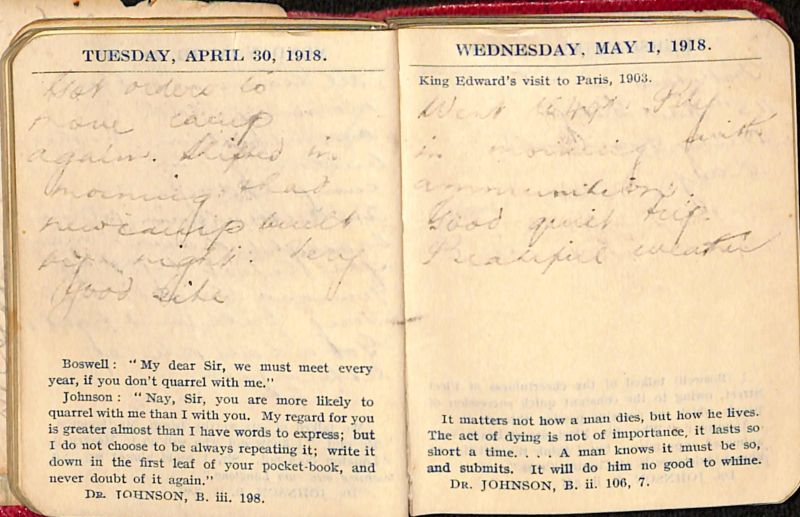 TUESDAY, APRIL 30, 1918.
Got orders to
move camp
again. Shifted in
morning & had
new camp built
by night. Very
good site
Boswell: "My dear Sir, we must meet every
year, if you don't quarrel with me."
Johnson: "Nay, Sir, you are more likely to
quarrel with me than I with you. My regard for you
is greater almost than I have words to express; but
I do not choose to be always repeating it; write it
down in the first leaf of your pocket-book, and
never doubt of it again."
DR. JOHNSON, B. iii. 198.
WEDNESDAY, MAY 1, 1918.
King Edward's visit to Paris, 1903.
Went
in morning with
ammunition.
Good quiet trip.
Beautiful weather
It matters not how a man dies, but how he lives.
The act of dying is not of importance, it lasts so
short a time. . . . A man knows it must be so,
and submits. It will do him no good to whine.
DR. JOHNSON, B. ii. 106, 7.